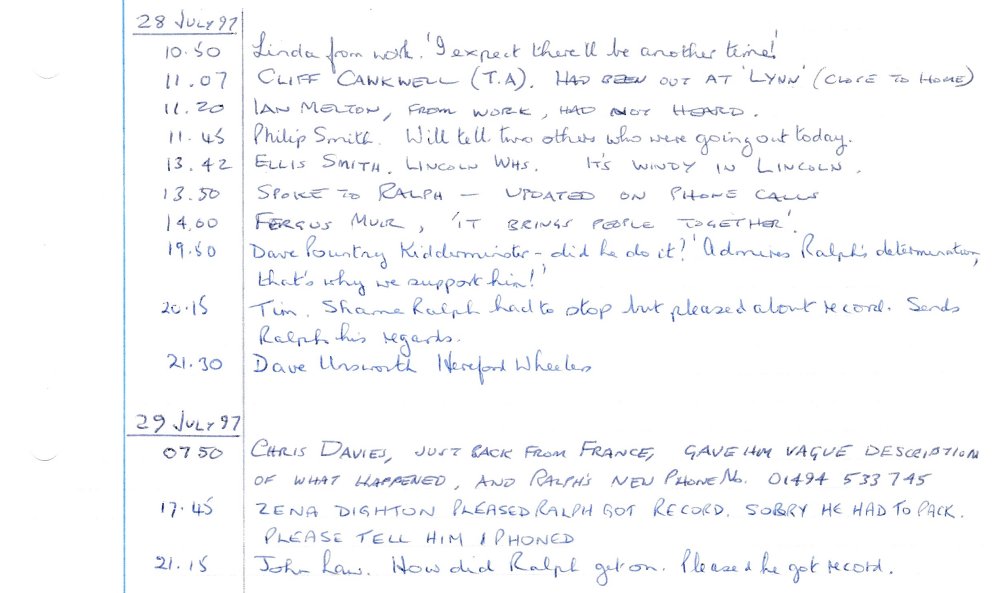 28 JULY 97
10.50 Linda from work. 'I expect there'll be another time!'
11.07 CLIFF CANKWELL (T.A). HAD BEEN OUT AT 'LYNN' (CLOSE TO HOME)
11.20 IAN MELTON, FROM WORK, HAD NOT HEARD.
11.45 Philip Smith. Will tell two others who were going out today.
13.42 ELLIS SMITH. LINCOLN WHS. IT'S WINDY IN LINCOLN.
13.50 SPOKE TO RALPH — UPDATED ON PHONE CALLS
14.00 FERGUS MUIR, 'IT BRINGS PEOPLE TOGETHER'.
19.50 Dave Pountney Kidderminster - did he do it? 'Admires Ralph's determination,
that's why we support him!'
20.15 Tim. Shame Ralph had to stop but pleased about record. Sends
Ralph his regards.
21.30 Dave Unsworth Hereford Wheelers
29 JULY 97
0750 CHRIS DAVIES, JUST BACK FROM FRANCE, GAVE HIM VAGUE DESCRIPTION
OF WHAT HAPPENED, AND RALPH'S NEW PHONE No. 01494 533 745
17.45 ZENA DIGHTON PLEASED RALPH GOT RECORD. SORRY HE HAD TO PACK.
PLEASE TELL HIM I PHONED
21.15 John Law. How did Ralph get on. Pleased he got record.